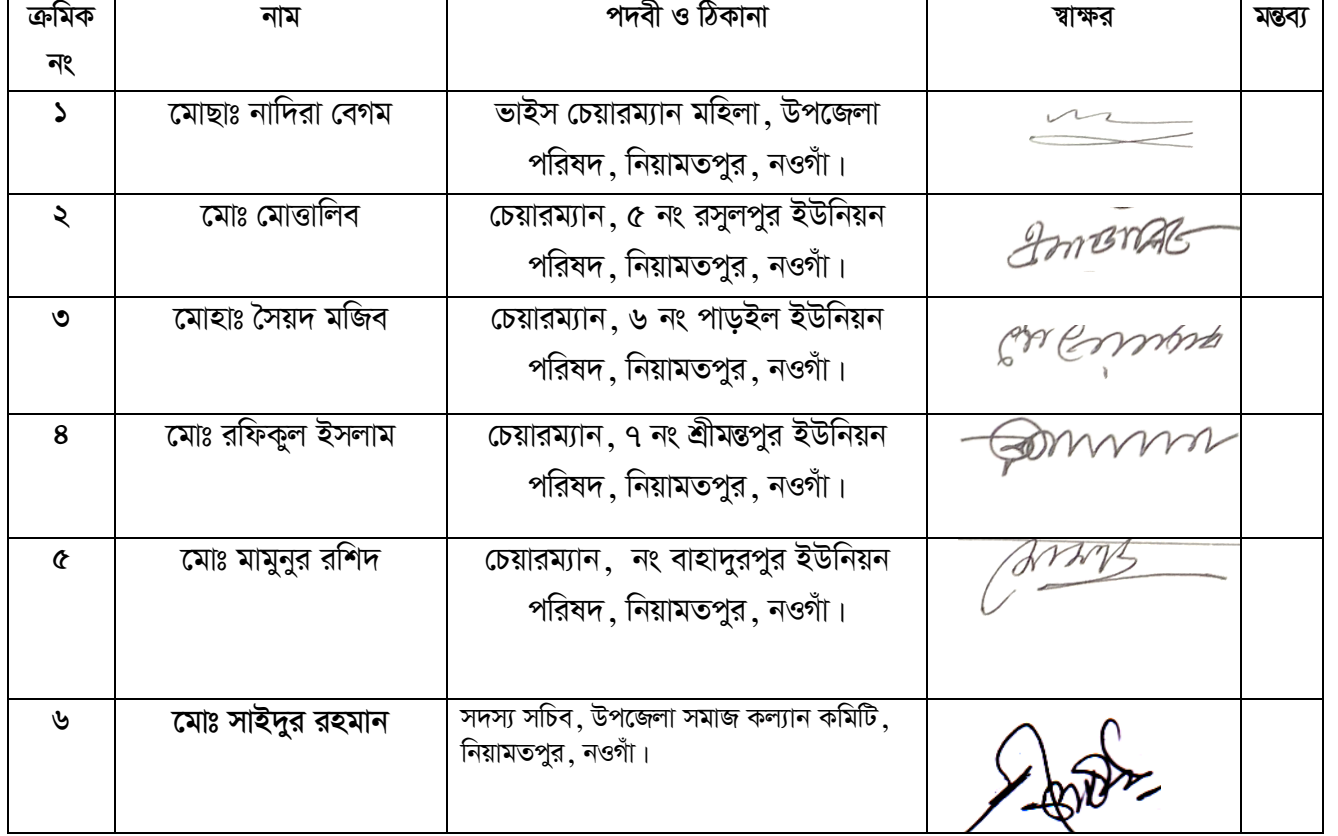 ক্রমিক নং নাম পদবী ও ঠিকানা স্বাক্ষর মন্তব্য
১ মোছাঃ নাদিরা বেগম ভাইস চেয়ারম্যান মহিলা, উপজেলা
পরিষদ, নিয়ামতপুর, নওগাঁ।
২ মোঃ মোত্তালিব চেয়ারম্যান, ৫ নং রসুলপুর ইউনিয়ন
পরিষদ, নিয়ামতপুর, নওগাঁ।
৩ মোহাঃ সৈয়দ মজিব চেয়ারম্যান, ৬ নং পাড়ইল ইউনিয়ন
পরিষদ, নিয়ামতপুর, নওগাঁ।
৪ মোঃ রফিকুল ইসলাম চেয়ারম্যান, ৭ নং শ্রীমন্তপুর ইউনিয়ন
পরিষদ, নিয়ামতপুর, নওগাঁ।
৫ মোঃ মামুনুর রশিদ চেয়ারম্যান, নং বাহাদুরপুর ইউনিয়ন
পরিষদ, নিয়ামতপুর, নওগাঁ।
৬ মোঃ সাইদুর রহমান সদস্য সচিব, উপজেলা সমাজ কল্যান কমিটি,
নিয়ামতপুর, নওগাঁ।